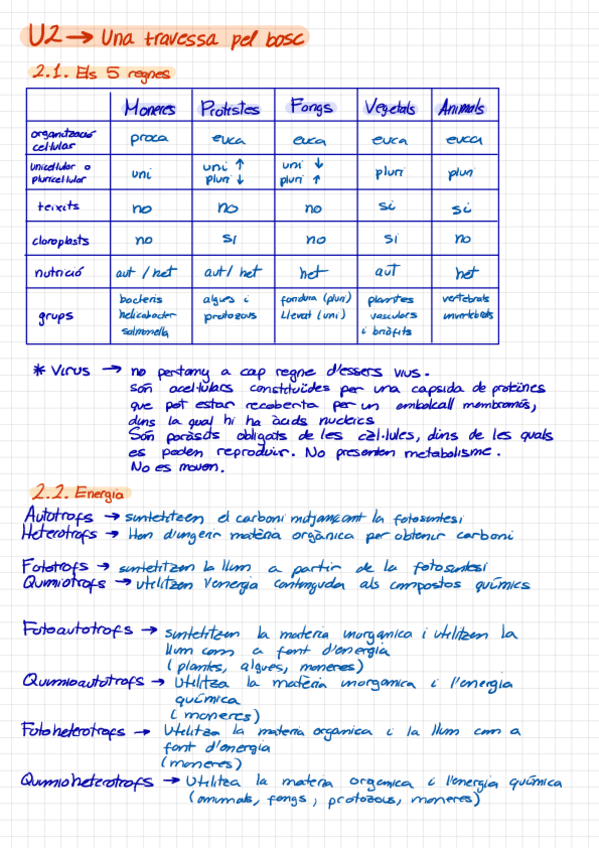 U2 → Una travessa pel bosc
2.1. Els 5 regnes
Moneres Protistes Fongs Vegetals Animals
organització cel·lular proca euca euca euca euca
unicellular o pluricellular uni uni ↑ pluri ↓ uni ↓ pluri ↑ pluri pluri
teixits no no no si si
cloroplasts no si no si no
nutrició aut / het aut / het het aut het
grups bacteris helicobacter salmonella algues i protozous fondura (pluri) Llevat (uni) plantes vasculars i briòfits vertebrats invertebrats
* Virus → no pertany a cap regne d'essers vius.
Són acellulars constituïdes per una capsida de proteïnes
que pot estar recoberta per un embolcall membranós,
dins la qual hi ha àcids nucleics
Són paràsits obligats de les cèl·lules, dins de les quals
es poden reproduir. No presenten metabolisme.
No es mouen.
2.2. Energia
Autotrofs → sintetitzen el carboni mitjançant la fotosintesi
Heterotrofs → Han d'ingerir matèria orgànica per obtenir carboni
Fototrofs → sintetitzen la llum a partir de la fotosintesi
Quimiotrofs → utilitzen l'energia continguda als compostos químics
Fotoautotrofs → sintetitzen la materia inorganica i utilitzen la
llum com a font d'energia
(plantes, algues, moneres)
Quimioautotrofs → Utilitza la matèria inorganica i l'energia
química
(moneres)
Fotoheterotrofs → Utilitza la materia organica i la llum com a
font d'energia
(moneres)
Quimioheterotrofs → Utilitza la materia organica i l'energia química
(animals, fongs, protozous, moneres)